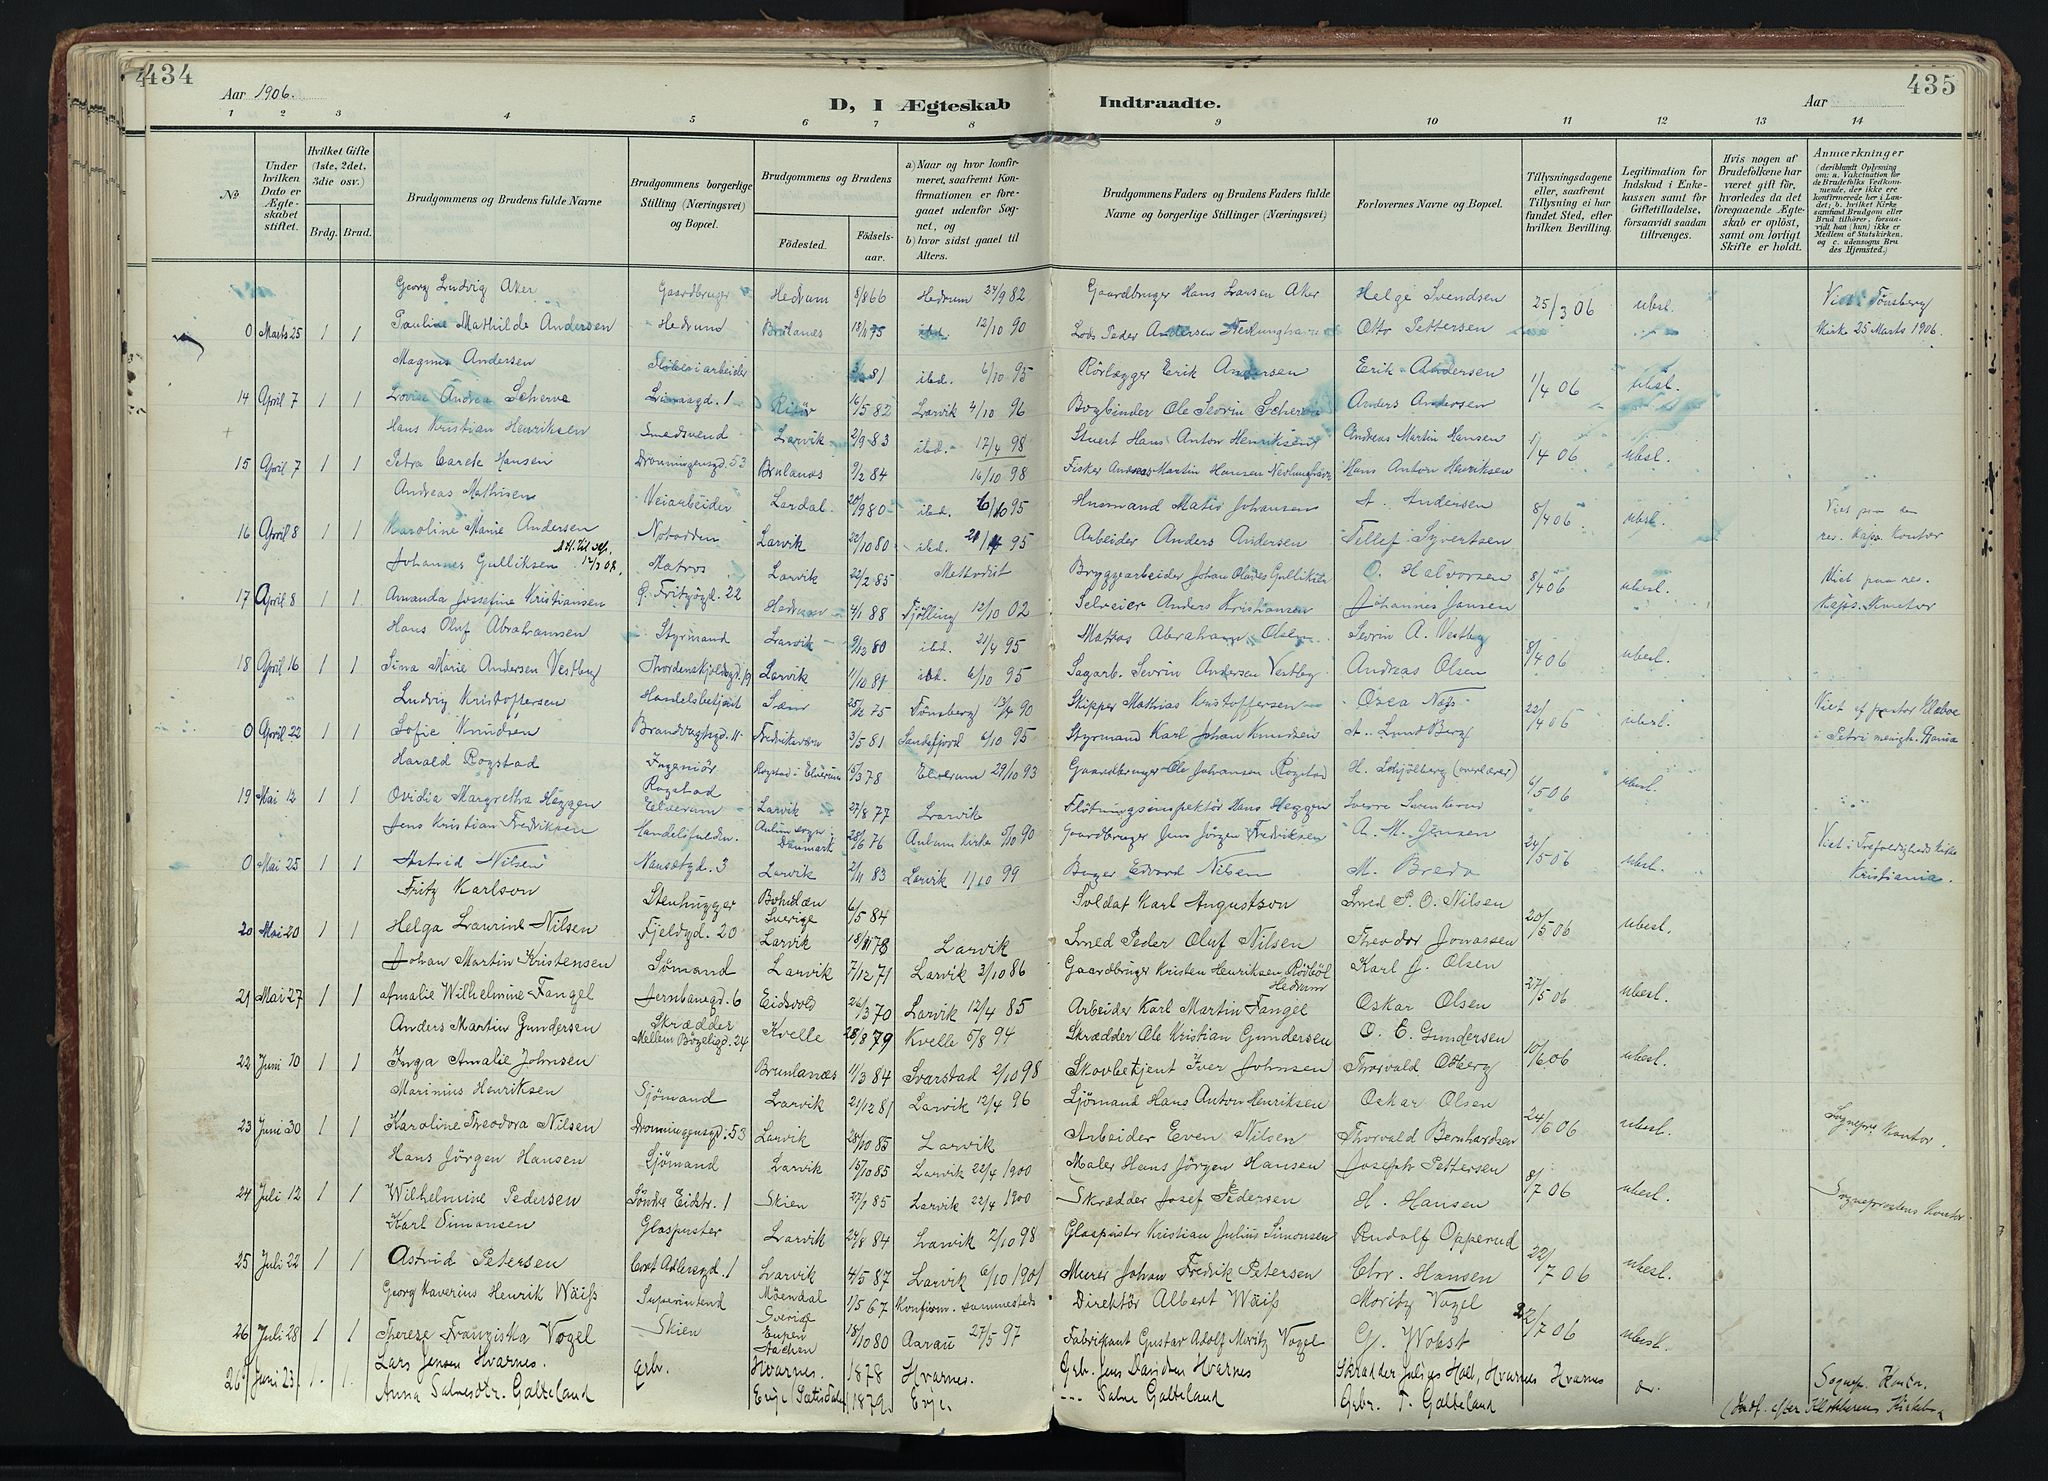 434
435
Aar 1906.
D, I Ægteskab Indtraadte.
Aar
1 2 3 4 5 6 7 8 9 10 11 12 13 14
No
Under hvilken Dato er Ægteskabet stiftet.
Hvilket Gifte (1ste, 2det, 3die osv.)
Brdg. Brud.
Brudgommens og Brudens fulde Navne
Brudgommens borgerlige Stilling (Næringsvei) og Bopæl.
Brudgommens og Brudens
Fødested. Fødselsaar.
a) Naar og hvor konfirmeret, saafremt Konfirmationen er foregaaet udenfor Sognet, og
b) hvor sidst gaaet til Alters.
Brudgommens Faders og Brudens Faders fulde Navne og borgerlige Stillinger (Næringsvei)
Forlovernes Navne og Bopæl.
Tillysningsdagene eller, saafremt Tillysning ei har fundet Sted, efter hvilken Bevilling.
Legitimation for Indskud i Enkekassen samt for Giftetilladelse, forsaavidt saadan tiltrænges.
Hvis nogen af Brudefolkene har været gift før, hvorledes da det foregaaende Ægteskab er opløst, samt om lovligt Skifte er holdt.
Anmærkninger (deriblandt Oplysning om: a. Vakcination for de Brudefolks Vedkommende, der ikke ere konfirmerede her i Landet; b. hvilket Kirkesamfund Brudgom eller Brud tilhører, forsaavidt han (hun) ikke er Medlem af Statskirken, og c. udensogns Brudes Hjemsted.)
Georg Ludvig Aker Gaardbruger Hedrum 8/8 66 Hedrum 24/9 82 Gaardbruger Hans Larsen Aker Helge Svendsen 25/3 06 ubesl. Viet i Tønsberg
0 Marts 25 1 1 Pauline Mathilde Andersen Hedrum Brulanes 18/11 75 ibd. 12/10 90 Lods Peder Andersen Otto Pettersen Kirke 25 Marts 1906.
Magnus Andersen 81 ibd. 6/10 95 Rörlægger Erik Andersen Erik Andersen 1/4 06 ubesl.
14 April 7 1 1 Lovise Andrea Scherve Risör 16/5 82 Larvik 4/10 96 Bogbinder Ole Sevrin Scherve Anders Andersen
Hans Kristian Henriksen Smedsvend Larvik 2/9 83 ibd. 17/4 98 Stuert Hans Anton Henriksen Andreas Martin Hansen 1/4 06 ubesl.
15 April 7 1 1 Petra Carete Hansen Dronningensgd. 53 Brulanes 9/2 84 16/10 98 Fisker Andreas Martin Hansen Hans Anton Henriksen
Andreas Mathisen Veiarbeider Lardal 20/9 80 ibd. 6/10 95 Husmand Matis Johansen A. Andersen 8/4 06 ubesl. Viet paa
16 April 8 1 1 Karoline Marie Andersen Notodden Larvik 22/10 80 ibd. 95 Arbeider Anders Andersen Tellef Syvertsen res. Kaps. Kontor
Johannes Gulliksen Matros Larvik 22/2 85 Methodist Bryggearbeider Johan Gulliksen O. Halvorsen 8/4 06 ubesl. Viet paa res.
17 April 8 1 1 Amanda Josefine Kristiansen Hedrum 4/1 88 Tjølling 12/10 02 Selveier Anders Kristiansen Johannes Jansen Kaps. Kontor
Hans Oluf Abrahamsen Styrmand Larvik 9/12 80 ibd. 21/4 95 Matros Abraham Olsen Sevrin A. Vestby 8/4 06 ubesl.
18 April 16 1 1 Sina Marie Andersen Vestby Thordenskjoldsgd. 19 Larvik 11/10 81 ibd. 6/10 95 Sagarb. Sevrin Andersen Vestby Andreas Olsen
Ludvig Kristoffersen Handelsbetjent Sem 25/12 75 Tönsberg 13/4 90 Skipper Mathias Kristoffersen Osea Næss 22/4 06 ubesl. Viet af pastor Klaboe
0 April 22 1 1 Sofie Knudsen Brandvagtsgd. 11 Fredriksvern 3/5 81 Sandefjord 6/10 95 Styrmand Karl Johan Knudsen A. Lund Berg i Petri menigh.
Harald Rogstad Ingeniör Rogstad i Elverum 5/3 78 Elverum 29/10 93 Gaardbruger Ole Johansen Rogstad H. Schjölberg (overlærer) 6/5 06 ubesl.
19 Mai 12 1 1 Ovidia Margretha Heggen Rogstad Elverum Larvik 27/8 77 Larvik Flötningsinspektör Hans Heggen
Jens Kristian Fredriksen Handelsfuldm. Aulum sogn i Danmark 28/6 76 Aulum Kirke 5/10 90 Gaardbruger Jens Jörgen Fredriksen A. M. Jensen 24/5 06 ubesl. Viet i Trefoldigheds Kirke
0 Mai 25 1 1 Astrid Nilsen Nansetgd. 3 Larvik 2/11 83 Larvik 1/10 99 Edvard Nilsen M. Bredo Kristiania.
Fritz Karlson Stenhugger Bohuslæn Sverige 6/5 84 Soldat Karl Angustson Smed P. O. Nilsen 20/5 06 ubesl.
20 Mai 20 1 1 Helga Laurine Nilsen Fjeldgd. 20 Larvik 18/11 78 Larvik Smed Peder Oluf Nilsen Theodor Jonassen
Johan Martin Kristensen Sømand Larvik 7/12 71 Larvik 3/10 86 Gaardbruger Kristen Henriksen Rödböl Hedrum Karl J. Olsen 27/5 06 ubesl.
21 Mai 27 1 1 Amalie Wilhelmine Fangel Jernbanegd. 6 Eidsvold 26/3 70 Larvik 12/4 85 Arbeider Karl Martin Fangel Oskar Olsen
Anders Martin Gundersen Skrædder Kvelle 28/8 79 Kvelle 5/8 94 Skrædder Ole Kristian Gundersen O. E. Gundersen 10/6 06 ubesl.
22 Juni 10 1 1 Inga Amalie Johnsen Mellem Bøgeligd. 24 Brunlanæs 11/3 84 Svarstad 2/10 98 Skovbetjent Iver Johnsen Thorvald Odberg
Marinius Henriksen Sjömand Larvik 21/12 81 Larvik 12/4 96 Sjömand Hans Anton Henriksen Oskar Olsen 24/6 06 ubesl. Sognepr. Kontor.
23 Juni 30 1 1 Karoline Theodora Nilsen Dronningensgd. 53 Larvik 28/10 85 Larvik Arbeider Even Nilsen Thorvald Bernhardsen
Hans Jörgen Hansen Sjömand Larvik 15/10 85 Larvik 22/4 1900 Maler Hans Jörgen Hansen Joseph Pettersen 8/7 06 ubesl.
24 Juli 12 1 1 Wilhelmine Pedersen Søndre Eidstr. 1 Skien 27/1 85 Larvik 22/4 1900 Skrædder Josef Pedersen H. Hansen Sogneprestens Kontor
Karl Simonsen Glaspuster Larvik 24/8 84 Larvik 2/10 98 Glaspuster Kristian Julius Simonsen Rudolf Opperud 22/7 06 ubesl.
25 Juli 22 1 1 Astrid Petersen Cort Adlersgd. 1 Larvik 4/5 87 Larvik 6/10 1901 Murer Johan Fredrik Petersen Chr. Hansen
Georg Xaverius Henrik Wäiss Superintend Möendal Sverige 1/5 67 Konfirm. sammesteds Direktör Albert Wäiss Moritz Vogel 22/7 06 ubesl.
26 Juli 28 1 1 Therese Franziska Vogel Skien Eupen Aachen 15/10 80 Aarau 27/5 97 Fabrikant Gustav Adolf Moritz Vogel G. Wobst
Lars Jensen Hvarnes. Grb. Hvarnes. 1878 Hvarnes. Grb. Jens Davidsen Hvarnes Skrædder Julius Holt, Hvarnes Sognep. Kontor.
26 Juni 23. 1. 1. Anna Salvesdtr. Galteland Evje (Sætisdalen) 1879. Evje. --- Salve Galteland Grbr. T. Galteland (Indf. efter Klokkerens Kirkebog